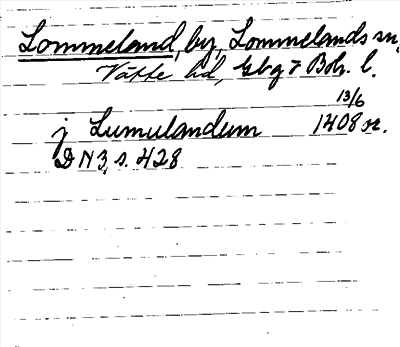 Lommeland, by, Lommelands sn,
Vätte hd, Gbg & Boh. l.
13/6
j Lumulandum 1408 or.
DN 3, s. 428